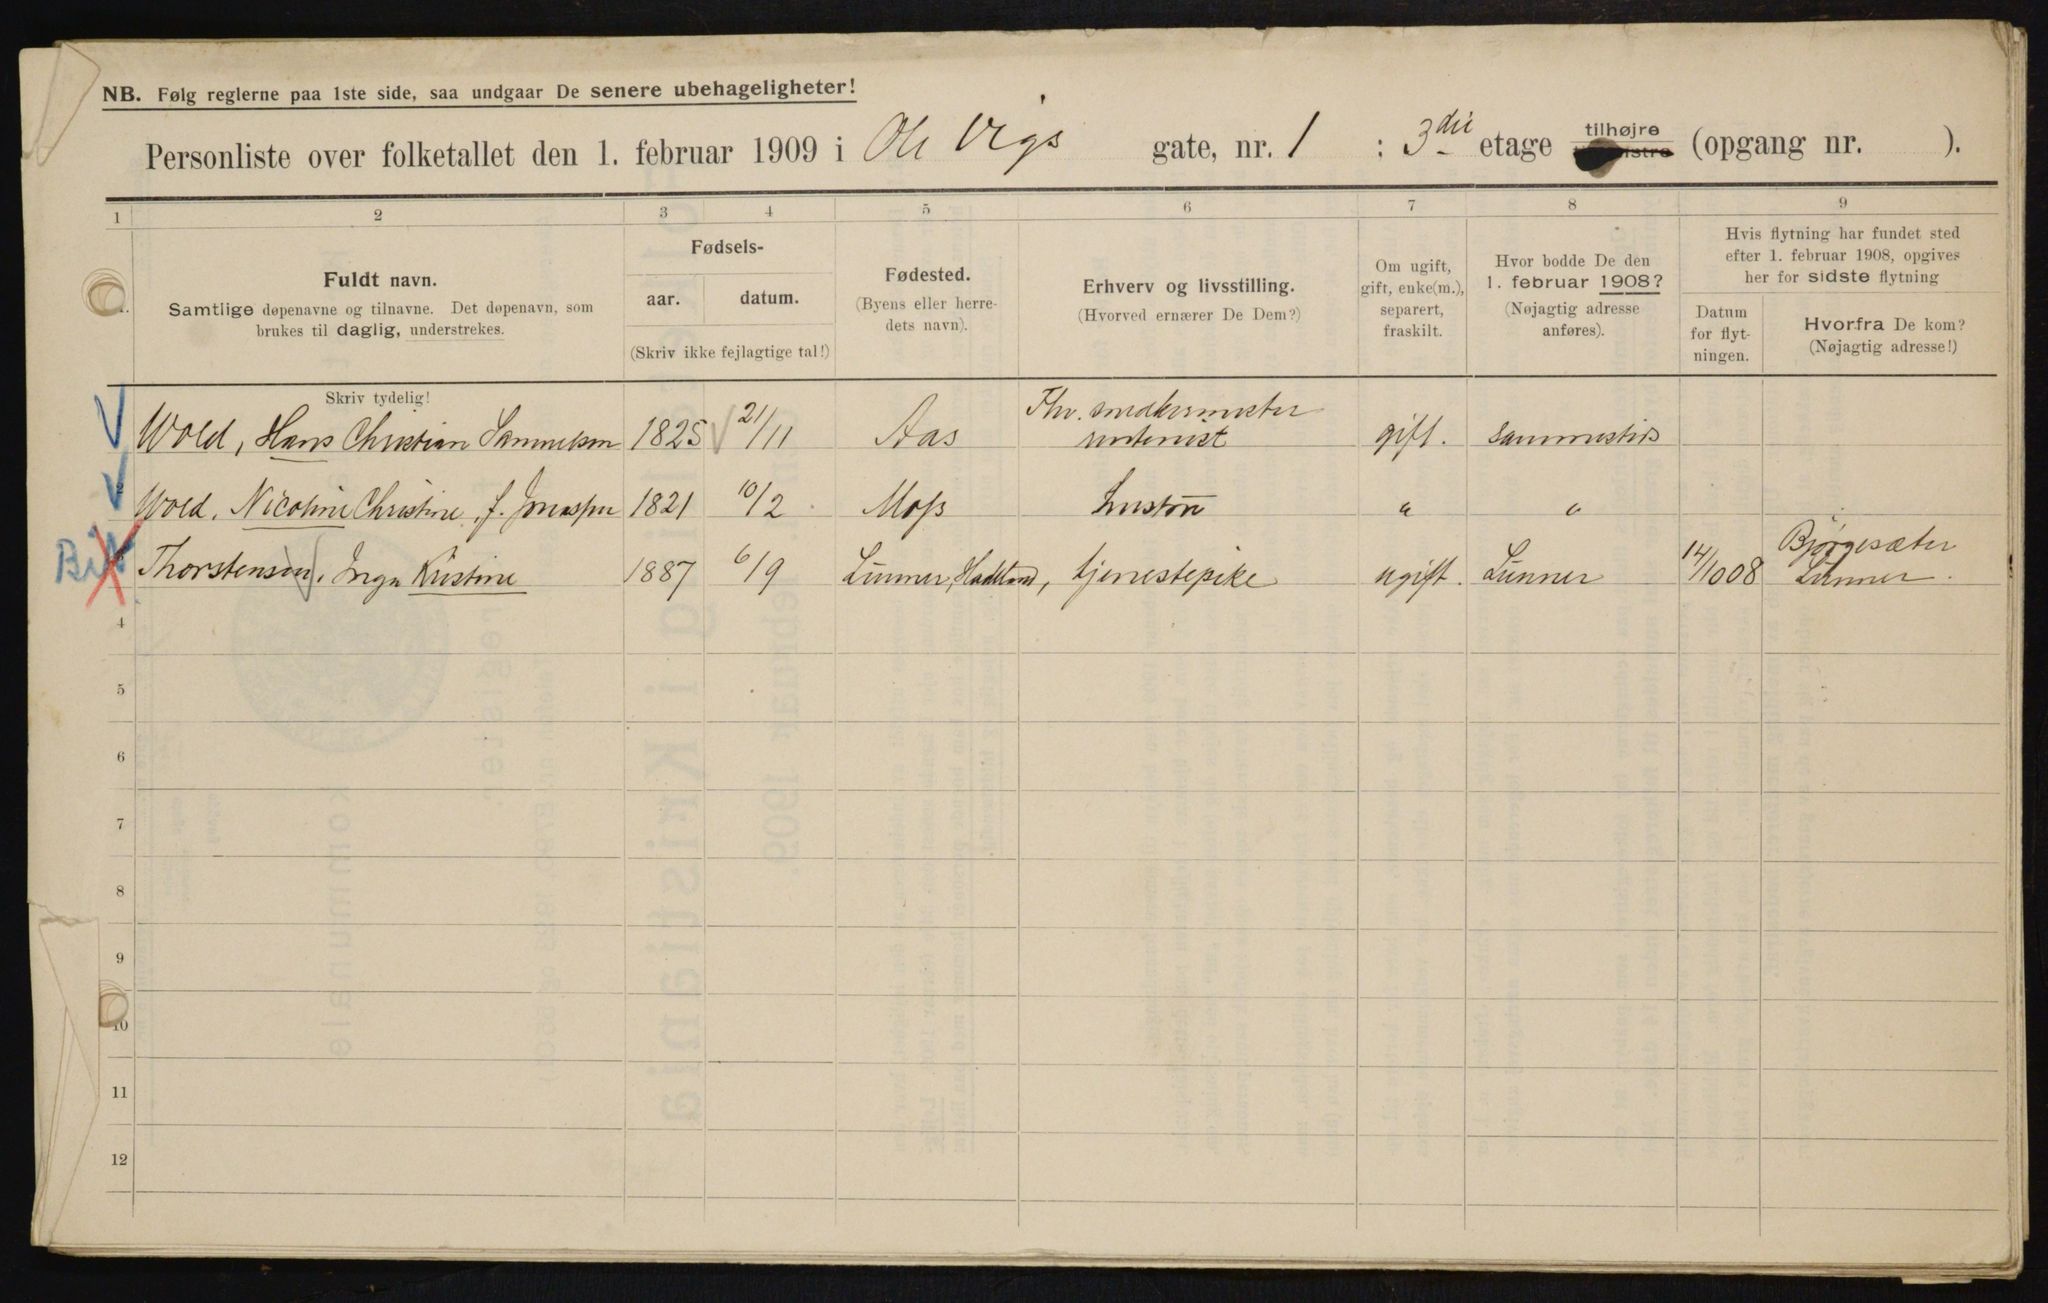 NB. Følg reglerne paa 1ste side, saa undgaar De senere ubehageligheter!
Personliste over folketallet den 1. februar 1909 i Ole Vigs gate, nr. 1 : 3die etage tilhøjre (opgang nr. ).
1 2 3 4 5 6 7 8 9
Fuldt navn.
Samtlige døpenavne og tilnavne. Det døpenavn, som
brukes til daglig, understrekes.
Fødsels-
aar. datum.
(Skriv ikke fejlagtige tal!)
Fødested.
(Byens eller herre-
dets navn).
Erhverv og livsstilling.
(Hvorved ernærer De Dem?)
Om ugift,
gift, enke(m.),
separert,
fraskilt.
Hvor bodde De den
1. februar 1908?
(Nøjagtig adresse
anføres).
Hvis flytning har fundet sted
efter 1. februar 1908, opgives
her for sidste flytning
Datum
for flyt-
ningen.
Hvorfra De kom?
(Nøjagtig adresse!)
Skriv tydelig!
Wold, Hans Christian Samuelsen 1825 21/11 Aas Fhv. smedkermester gift. sammesteds
2 Wold, Nicoline Christine, f. 1821 10/2 Moss hustru " "
Thorstensen, Inga Kristine 1887 6/9 Lunner, Hadeland, tjenestepike ugift. Lunner 14/10 08 Bjørgesæter
Lunner.
4
5
6
7
8
9
10
11
12